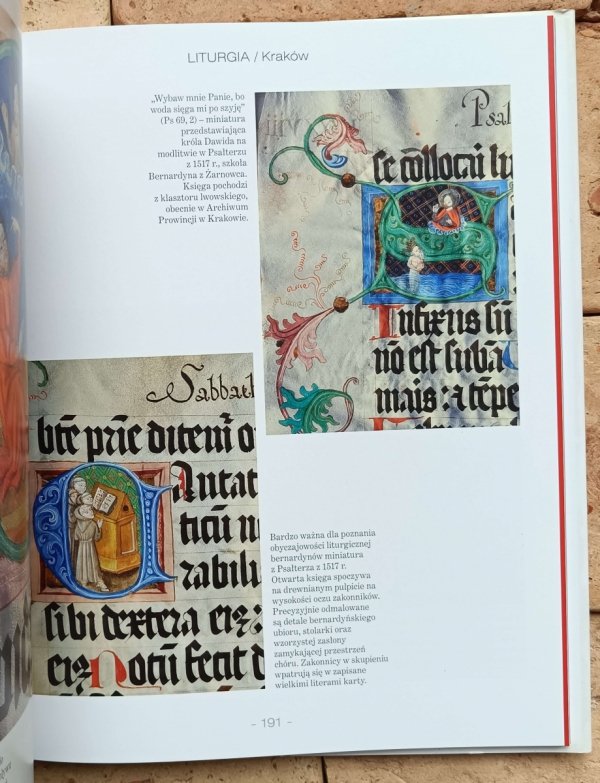 LITURGIA / Kraków
„Wybaw mnie Panie, bo
woda sięga mi po szyję”
(Ps 69, 2) – miniatura
przedstawiająca
króla Dawida na
modlitwie w Psałterzu
z 1517 r., szkoła
Bernardyna z Żarnowca.
Księga pochodzi
z klasztoru lwowskiego,
obecnie w Archiwum
Prowincji w Krakowie.
Psal
se collocũ
Infixus sũ
nõ est suba
mais : a tẽpe
Sabbat
bte prie ditem̃ o
Antat
ticũ n
rabili
sibi dextera eiz :
eiz Notũ fecit d
Bardzo ważna dla poznania
obyczajowości liturgicznej
bernardynów miniatura
z Psałterza z 1517 r.
Otwarta księga spoczywa
na drewnianym pulpicie na
wysokości oczu zakonników.
Precyzyjnie odmalowane
są detale bernardyńskiego
ubioru, stolarki oraz
wzorzystej zasłony
zamykającej przestrzeń
chóru. Zakonnicy w skupieniu
wpatrują się w zapisane
wielkimi literami karty.
- 191 -